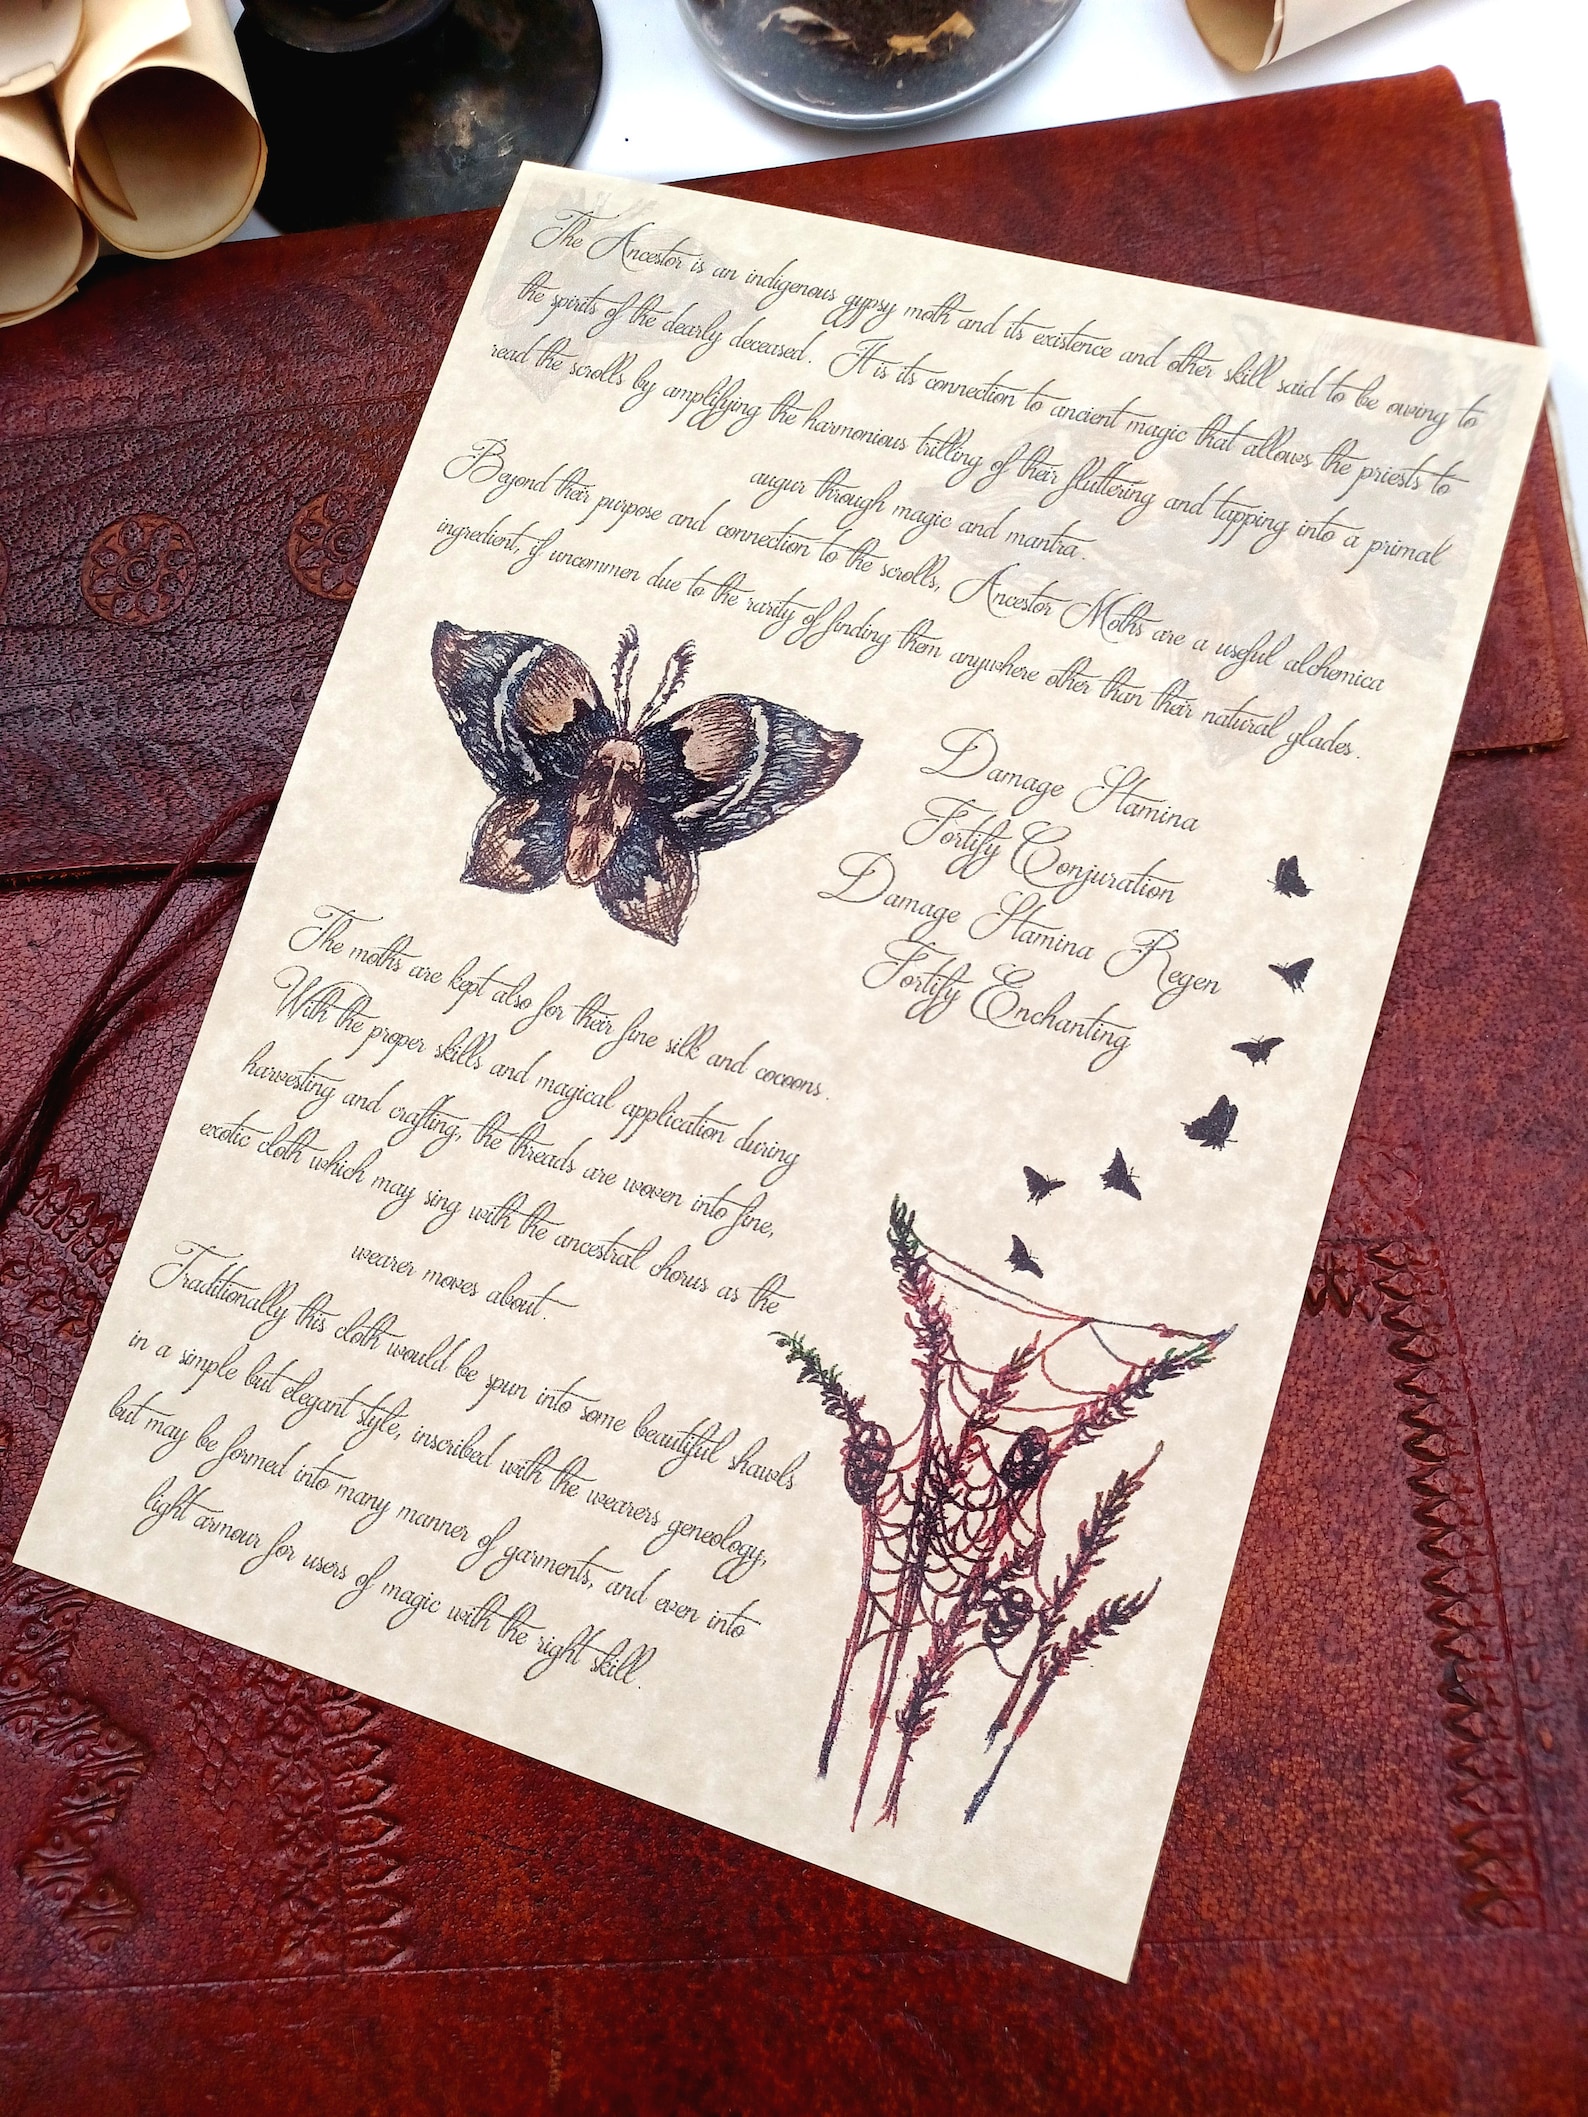 The Ancestor is an indigenous gypsy moth and its existence and other skill said to be owing to
the spirits of the dearly deceased. It is its connection to ancient magic that allows the priests to
read the scrolls by amplifying the harmonious trilling of their fluttering and tapping into a primal
augur through magic and mantra.
Beyond their purpose and connection to the scrolls, Ancestor Moths are a useful alchemica
ingredient, if uncommen due to the rarity of finding them anywhere other than their natural glades.
Damage Stamina
Fortify Conjuration
Damage Stamina Regen
Fortify Enchanting
The moths are kept also for their fine silk and cocoons.
With the proper skills and magical application during
harvesting and crafting, the threads are woven into fine,
exotic cloth which may sing with the ancestral chorus as the
wearer moves about.
Traditionally this cloth would be spun into some beautiful shawls
in a simple but elegant style, inscribed with the wearers geneology,
but may be formed into many manner of garments, and even into
light armour for users of magic with the right skill.